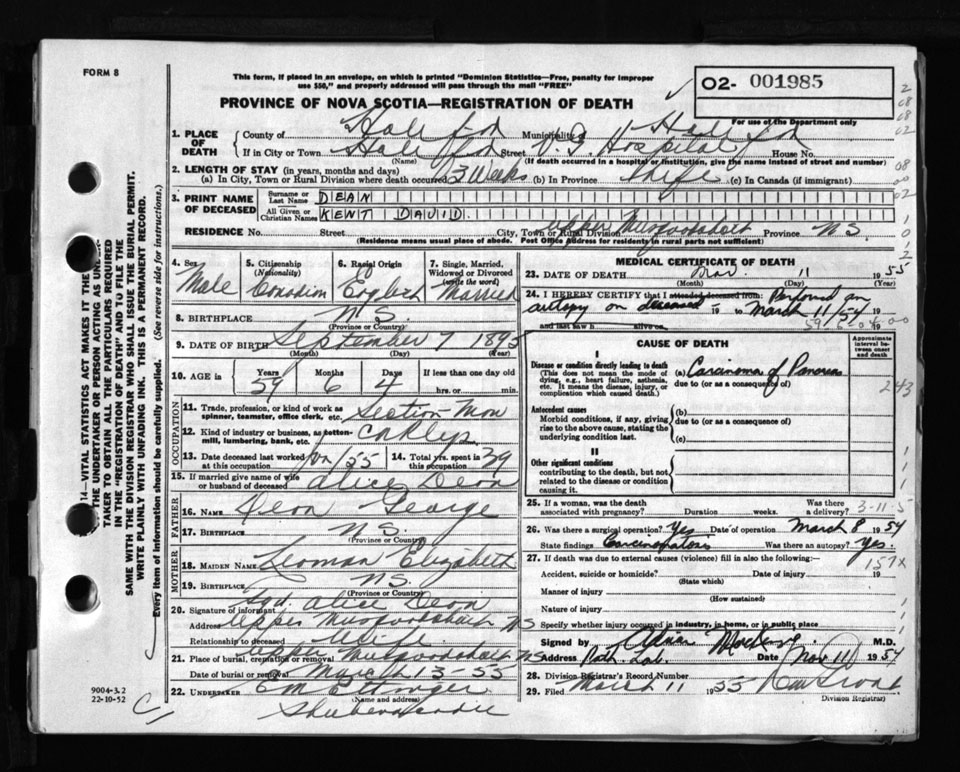 FORM 8
This form, if placed in an envelope, on which is printed "Dominion Statistics—Free, penalty for improper
use $50," and properly addressed will pass through the mail "FREE"
O2- 001985
For use of the Department only
PROVINCE OF NOVA SCOTIA—REGISTRATION OF DEATH
14. VITAL STATISTICS ACT MAKES IT THE
THE UNDERTAKER OR PERSON ACTING AS
TAKER TO OBTAIN ALL THE PARTICULARS REQUIRED
IN THE "REGISTRATION OF DEATH" AND TO FILE THE
SAME WITH THE DIVISION REGISTRAR WHO SHALL ISSUE THE BURIAL PERMIT.
WRITE PLAINLY WITH UNFADING INK. THIS IS A PERMANENT RECORD.
Every item of information should be carefully supplied. (See reverse side for instructions.)
1. PLACE OF DEATH
County of Halifax Municipality of Halifax
If in City or Town Halifax Street V.G. Hospital House No.
(Name) (If death occurred in a hospital or institution, give the name instead of street and number)
2. LENGTH OF STAY (in years, months and days)
(a) In City, Town or Rural Division where death occurred 3 Weeks (b) In Province Life (c) In Canada (if immigrant)
3. PRINT NAME OF DECEASED
Surname or Last Name DEAN
All Given or Christian Names KENT DAVID.
RESIDENCE No. Street City, Town or Rural Division Upper Musquodoboit Province N S.
(Residence means usual place of abode. Post Office Address for residents in rural parts not sufficient)
4. Sex Male
5. Citizenship (Nationality) Canadian
6. Racial Origin English
7. Single, Married, Widowed or Divorced (write the word) Married
8. BIRTHPLACE N S.
(Province or Country)
9. DATE OF BIRTH September 7 1895
(Month) (Day) (Year)
10. AGE in Years 59 Months 6 Days 4 If less than one day old
hrs. or min.
OCCUPATION
11. Trade, profession, or kind of work as spinner, teamster, office clerk, etc. Section Man
12. Kind of industry or business, as cotton-mill, lumbering, bank, etc. C N Rlys.
13. Date deceased last worked at this occupation Jan/55 14. Total yrs. spent in this occupation 39
15. If married give name of wife or husband of deceased Alice Dean
FATHER
16. NAME Dean George
17. BIRTHPLACE N S.
(Province or Country)
MOTHER
18. MAIDEN NAME Elizabeth
19. BIRTHPLACE N S.
(Province or Country)
20. Signature of informant Sgd. Alice Dean
Address Upper Musquodoboit N S
Relationship to deceased Wife
21. Place of burial, cremation or removal Upper Musquodoboit N S
Date of burial or removal March 13 55
22. UNDERTAKER E M Ettinger
(Name and address)
Shubenacadie
9004-3.2
22-10-52
MEDICAL CERTIFICATE OF DEATH
23. DATE OF DEATH Mar. 11 1955
(Month) (Day) (Year)
24. I HEREBY CERTIFY that I attended deceased from: Performed an
autopsy on deceased 19 to March 11/54 19
and last saw h alive on 19
CAUSE OF DEATH
Approximate interval between onset and death
I
Disease or condition directly leading to death
(This does not mean the mode of dying, e.g., heart failure, asthenia, etc. It means the disease, injury, or complication which caused death.)
(a) Carcinoma of Pancreas
due to (or as a consequence of)
243
Antecedent causes
Morbid conditions, if any, giving rise to the above cause, stating the underlying condition last.
(b)
due to (or as a consequence of)
(c)
II
Other significant conditions
contributing to the death, but not related to the disease or condition causing it.
25. If a woman, was the death associated with pregnancy? Duration weeks. Was there a delivery?
3-11-5
26. Was there surgical operation? Yes Date of operation March 8 1954
State findings Carcinomatosis Was there an autopsy? Yes.
157X
27. If death was due to external causes (violence) fill in also the following:
Accident, suicide or homicide? Date of injury 19
(State which)
Manner of injury
(How sustained)
Nature of injury
Specify whether injury occurred in industry, in home, or in public place
Signed by M.D.
Address Path. Lab. Date Nov 11 1954
28. Division Registrar's Record Number
29. Filed March 11 1955
Division Registrar